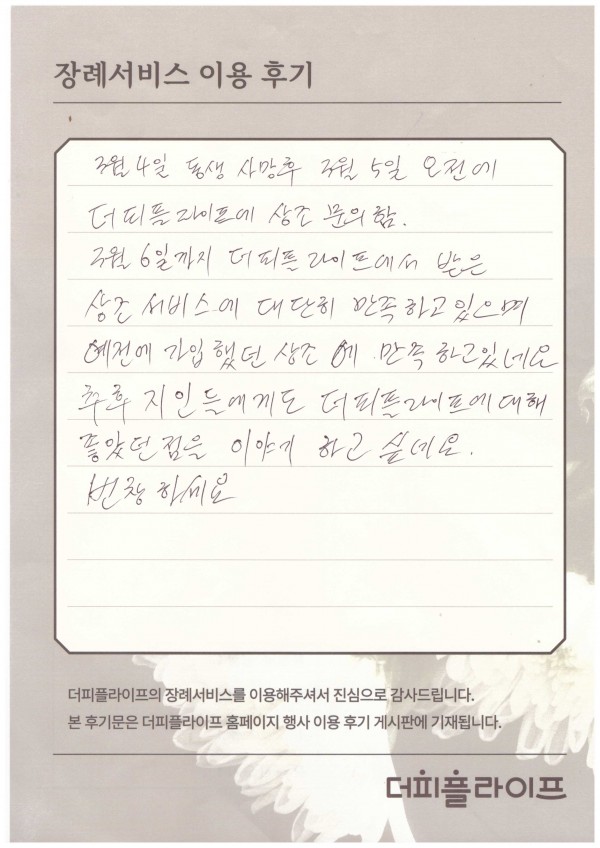 장례서비스 이용 후기
3월 4일 동생 사망후 3월 5일 오전에
더피플라이프에 상조 문의함.
3월 6일까지 더피플라이프에서 받은
상조 서비스에 대단히 만족하고있으며
예전에 가입했던 상조에 만족하고있네요
추후 지인들에게도 더피플라이프에대해
좋았던점을 이야기 하고 싶네요.
번창하세요
더피플라이프의 장례서비스를 이용해주셔서 진심으로 감사드립니다.
본 후기문은 더피플라이프 홈페이지 행사 이용 후기 게시판에 기재됩니다.
더피플라이프